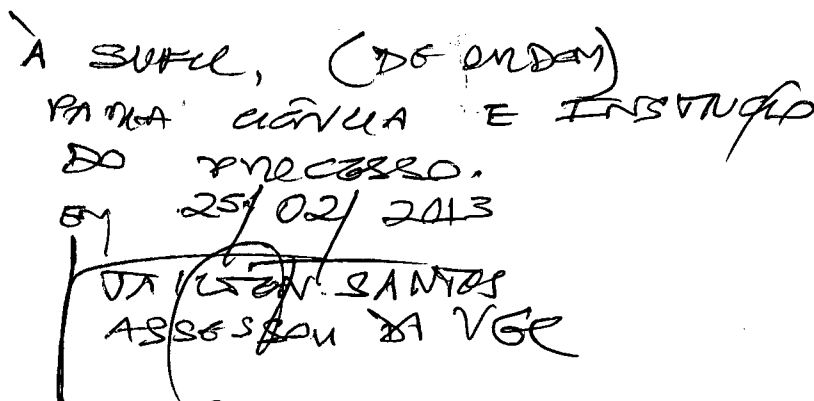 À SUFIL, (DE ORDEM)
PARA CIÊNCIA E INSTRUÇÃO
DO PROCESSO.
EM 25/02/2013
SANTOS
ASSESSOR DA